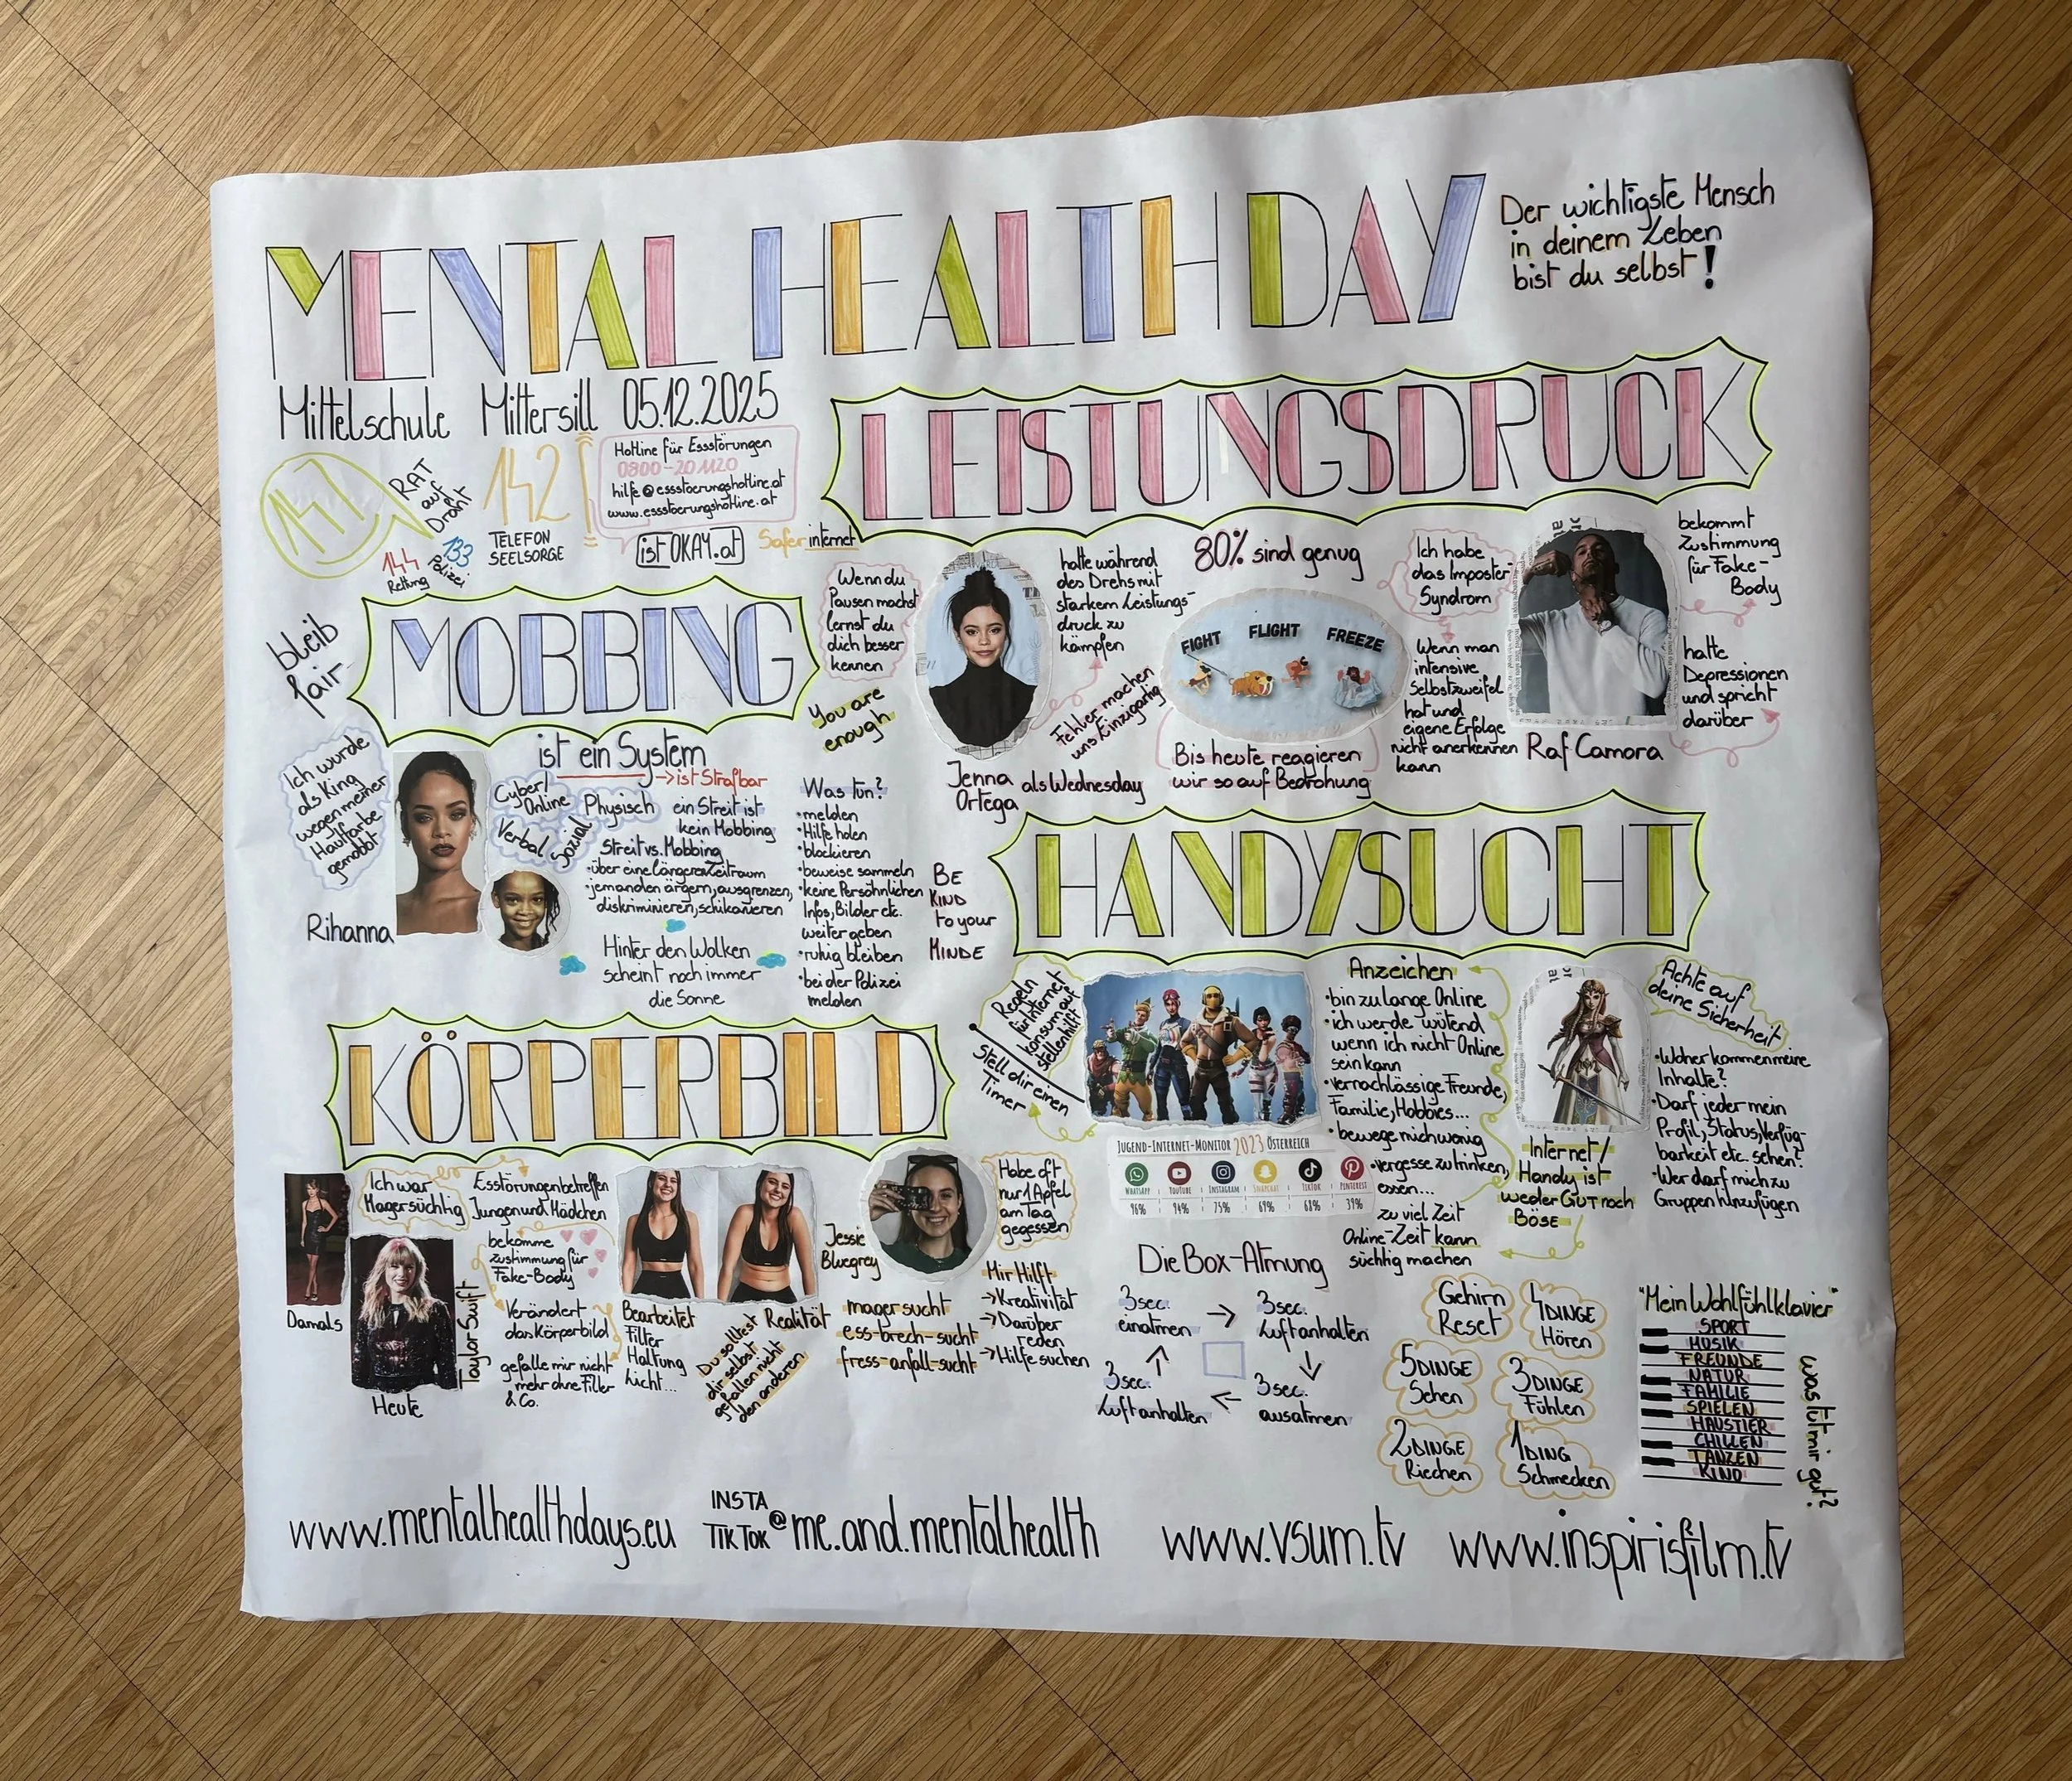 MENTAL HEALTH DAY
Der wichtigste Mensch
in deinem Leben
bist du selbst!
Mittelschule Mittersill 05.12.2025
147
RAT
auf
Draht
144
Rettung
133
Polizei
142
TELEFON
SEELSORGE
Hotline für Essstörungen
0800-20 11 20
hilfe@essstoerungshotline.at
www.essstoerungshotline.at
istOKAY.at
Saferinternet
LEISTUNGSDRUCK
Wenn du
Pausen machst
lernst du
dich besser
kennen
You are
enough
hatte während
des Drehs mit
starkem Leistungs-
druck zu
kämpfen
Jenna
Ortega
als Wednesday
Fehler machen
uns Einzigartig
80% sind genug
FIGHT FLIGHT FREEZE
Bis heute reagieren
wir so auf Bedrohung
Ich habe
das Imposter-
Syndrom
Wenn man
intensive
Selbstzweifel
hat und
eigene Erfolge
nicht anerkennen
kann
Raf Camora
bekommt
Zustimmung
für Fake-
Body
hatte
Depressionen
und spricht
darüber
bleib
fair
MOBBING
ist ein System
→ist Strafbar
Ich wurde
als King
wegen meiner
Hautfarbe
gemobbt
Rihanna
Cyber/
Online
Physisch
Verbal
Sozial
ein Streit ist
kein Mobbing
Streit vs. Mobbing
•über eine längeren Zeitraum
•jemanden ärgern, ausgrenzen,
diskriminieren, schikanieren
Hinter den Wolken
scheint noch immer
die Sonne
Was tun?
•melden
•Hilfe holen
•blockieren
•beweise sammeln
•keine Persönlichen
Infos, Bilder etc.
weiter geben
•ruhig bleiben
•bei der Polizei
melden
BE
KIND
to your
MINDE
HANDYSUCHT
Regeln
für Internet
konsum auf
stellen hilft
Stell dir einen
Timer
JUGEND-INTERNET-MONITOR 2023 ÖSTERREICH
WHATSAPP YOUTUBE INSTAGRAM SNAPCHAT TIKTOK PINTEREST
96% 94% 75% 69% 68% 39%
Anzeichen
•bin zu lange Online
•ich werde wütend
wenn ich nicht Online
sein kann
•vernachlässige Freunde,
Familie, Hobbies...
•bewege mich wenig
•vergesse zu trinken,
essen...
zu viel Zeit
Online-Zeit kann
süchtig machen
Internet/
Handy ist
weder GUT noch
BÖSE
Achte auf
deine Sicherheit
•Woher kommen meine
Inhalte?
•Darf jeder mein
Profil, Status, Verfüg-
barkeit etc. sehen?
•Wer darf mich zu
Gruppen hinzufügen
KÖRPERBILD
Damals
Heute
Taylor Swift
Ich war
Magersüchtig
Esstörungen betreffen
Jungen und Mädchen
bekomme
zustimmung für
Fake-Body
Verändert
das Körperbild
gefalle mir nicht
mehr ohne Filter
& Co.
Bearbeitet
Filter
Haltung
Licht...
Realität
Du solltest
dir selbst
gefallen nicht
den anderen
Jessie
Bluegrey
Habe oft
nur 1 Apfel
am Tag
gegessen
magersucht
ess-brech-sucht
fress-anfall-sucht
Mir Hilft
→Kreativität
→Darüber
reden
→Hilfe suchen
Die Box-Atmung
3sec.
einatmen
→
3sec.
Luft anhalten
3sec.
ausatmen
3sec.
Luft anhalten
Gehirn
Reset
4 DINGE
Hören
5 DINGE
Sehen
3 DINGE
Fühlen
2 DINGE
Riechen
1 DING
Schmecken
"Mein Wohlfühlklavier"
SPORT
MUSIK
FREUNDE
NATUR
FAMILIE
SPIELEN
HAUSTIER
CHILLEN
TANZEN
KINO
was tut mir gut?
www.mentalhealthdays.eu
INSTA
TIKTOK
@me.and.mentalhealth
www.vsum.tv
www.inspirisfilm.tv